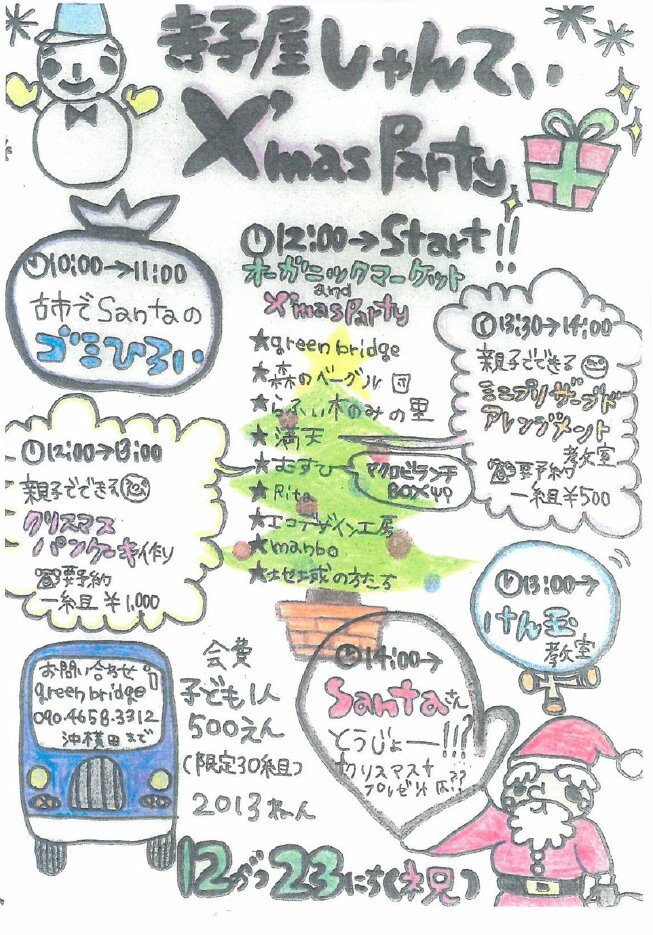 寺子屋しゃんてぃ
X'mas Party
10:00→11:00
古市でSantaの
ゴミひろい
12:00→Start!!
オーガニックマーケット
and
X'mas Party
★green bridge
★森のベーグル
★らふぃ木のみの里
★満天
★むすひ
マクロビランチ
BOXも?
★Rita
★エコデザイン工房
★manbo
★地域の方たち
13:30→14:00
親子でできる
ミニプリザーブド
アレンジメント
教室
要予約
一組¥500
12:00→13:00
親子でできる
クリスマス
パンケーキ作り
要予約
一組¥1,000
13:00→
けん玉
教室
お問い合わせ
green bridge
090.4658-3312
沖横田まで
会費
子ども1人
500えん
(限定30組)
2013ねん
14:00→
Santaさん
とうじょー!!!
クリスマス
プレゼントは??
12がつ23にち(祝)